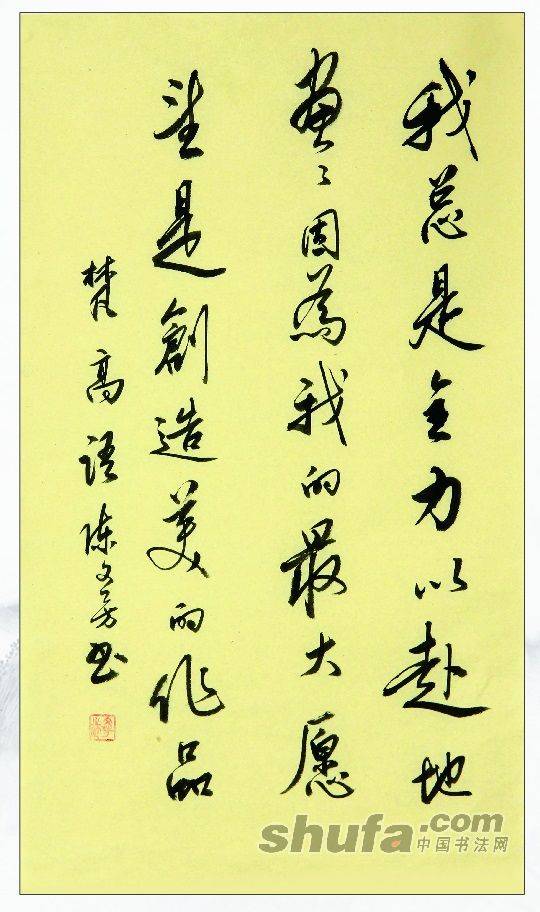 我总是全力以赴地
画々因為我的最大愿
望是創造美的作品
梵高语陈文芳书
shufa.com
中国书法网